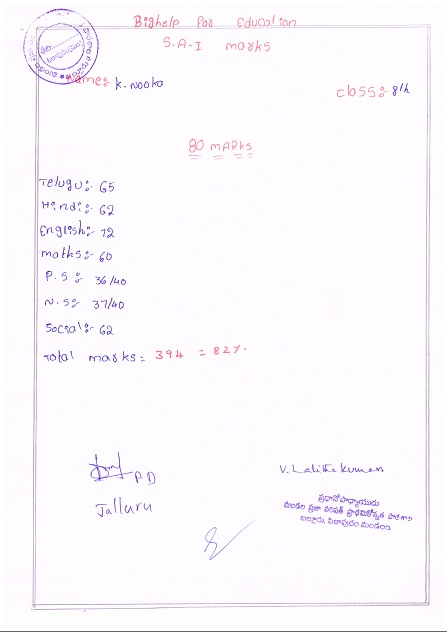 Bighelp For Education
S.A-I marks
Name:- K. Nooka
class:- 8th
80 MARKS
Telugu:- 65
Hindi:- 62
English:- 72
maths:- 60
P.S:- 36/40
N.S:- 37/40
Social:- 62
Total marks = 394 = 82%.
P D
V. Lalitha kumari
Jalluru
ప్రధానోపాధ్యాయుడు
మండల ప్రజా పరిషత్ ప్రాథమికోన్నత పాఠశాల
జల్లూరు, పిఠాపురం మండలం.